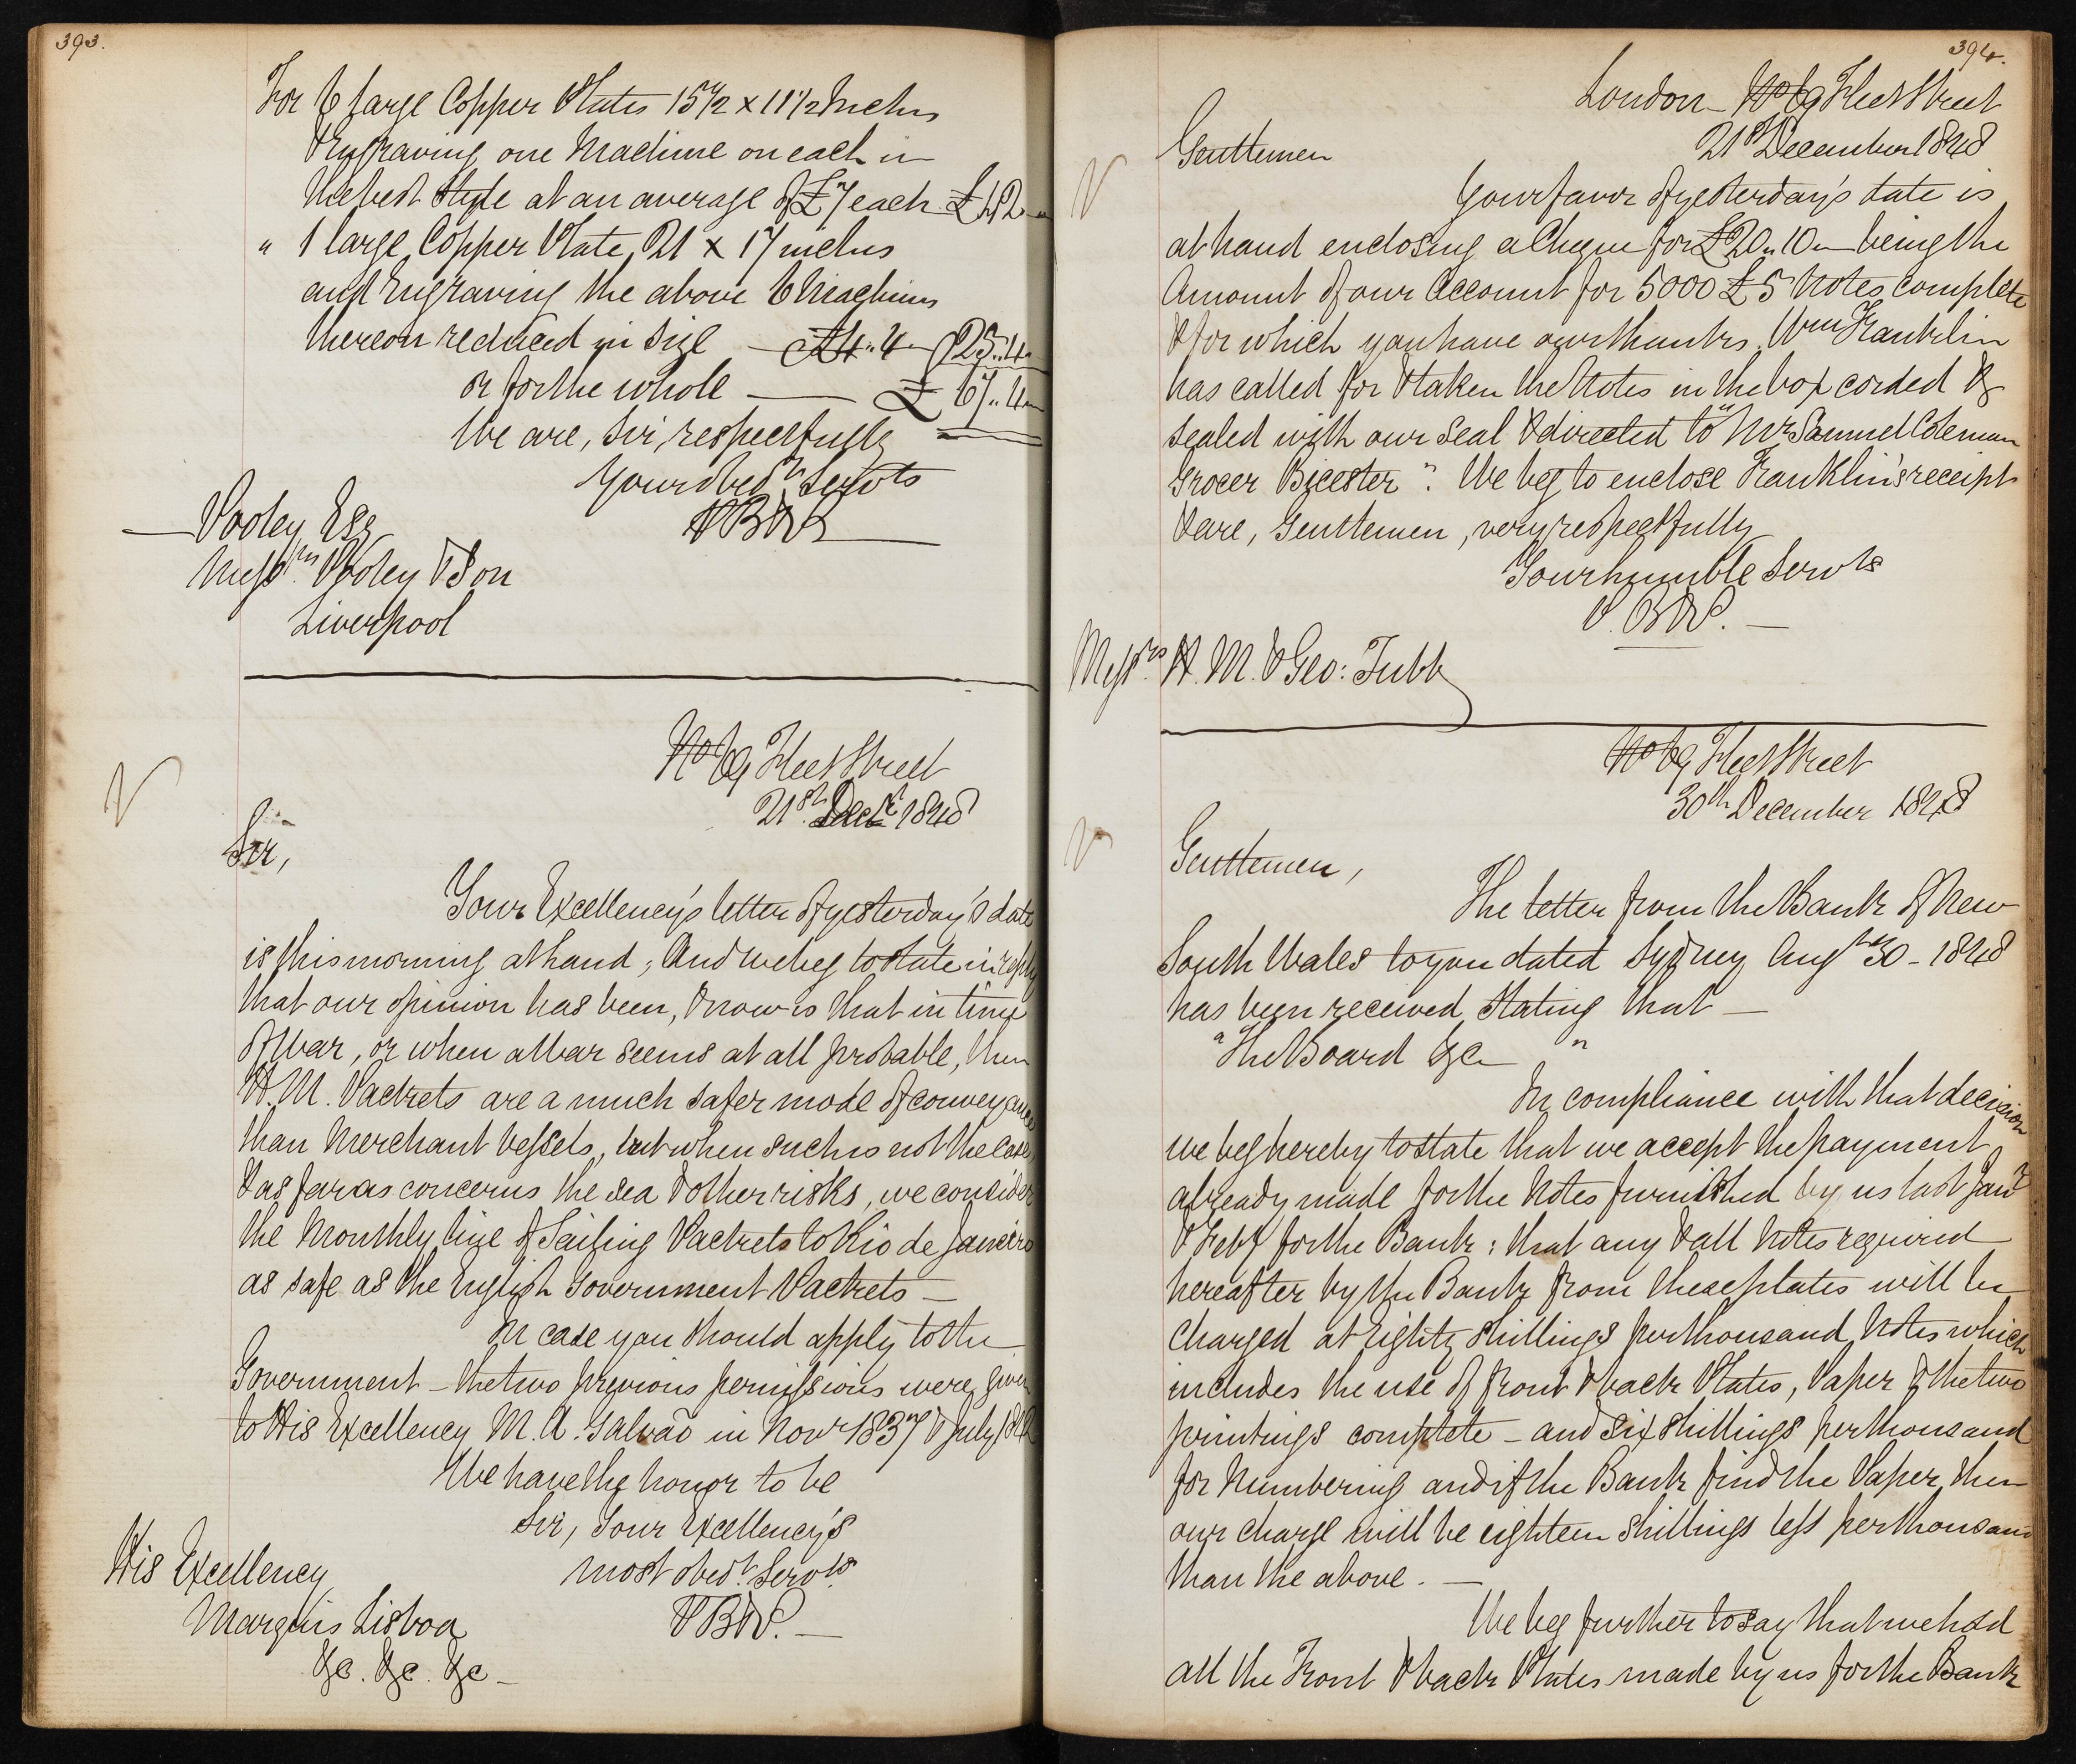 393.
For 6 large Copper Plates 15 1/2 x 11 1/2 Inches
& Engraving one Machine on each in
the best Style at an average of £7 each £42
" 1 large Copper Plate 21 x 17 inches
and Engraving the above 6 Machines
thereon reduced in size — 25..4
or for the whole — £67..4
We are, Sir, respectfully
Your obedt Servts
PB&P
— Pooley Esq
Messrs. Pooley & Son
Liverpool
No 69 Fleet Street
21st. Decr 1848
Sir,
Your Excellency's letter of yesterday's date
is this morning at hand; And we beg to state in reply
that our opinion has been, & now is that in time
of War, or when a War seems at all probable, then
H.M. Packets are a much safer mode of conveyance
than Merchant Vessels, but when such is not the case,
& as far as concerns the sea & other risks, we consider
the Monthly line of Sailing Packets to Rio de Janeiro
as safe as the English Government Packets —
In case you should apply to the
Government — the two previous permissions were given
to His Excellency M. A. Galvão in Novr 1837 & July
We have the honor to be
Sir, Your Excellency's
most obedt. Servts.
PB&P. —
His Excellency
Marquis Lisboa
&c. &c. &c —
394.
London — No 69 Fleet Street
21st December 1848
Gentlemen
Your favor of yesterday's date is
at hand enclosing a Cheque for £20..10 — being the
Amount of our Account for 5000 £5 Notes complete
& for which you have our thanks. Wm Franklin
has called for & taken the Notes in the box corded &
sealed with our seal & directed to "Mr Samuel Coleman
Grocer Bicester". We beg to enclose Franklin's receipt
& are, Gentlemen, very respectfully
Your humble Servts
P. B&P. —
Messrs. H. M. & Geo: Tubb
No 69 Fleet Street
30th December 1848
Gentlemen,
The letter from the Bank of New
South Wales to you dated Sydney Augt 30 — 1848
has been received, Stating that —
"The Board &c "
In compliance with that decision
we beg hereby to state that we accept the payment
already made for the Notes furnished by us last Jany
& Feby for the Bank; that any & all Notes required
hereafter by the Bank from these plates will be
charged at Eighty Shillings per thousand Notes which
includes the use of front & back Plates, Paper & the two
printings complete — and Six Shillings per thousand
for Numbering and if the Bank find the Paper, then
our charge will be eighteen Shillings less per thousand
than the above. —
We beg further to say that we hold
all the Front & back Plates made by us for the Bank